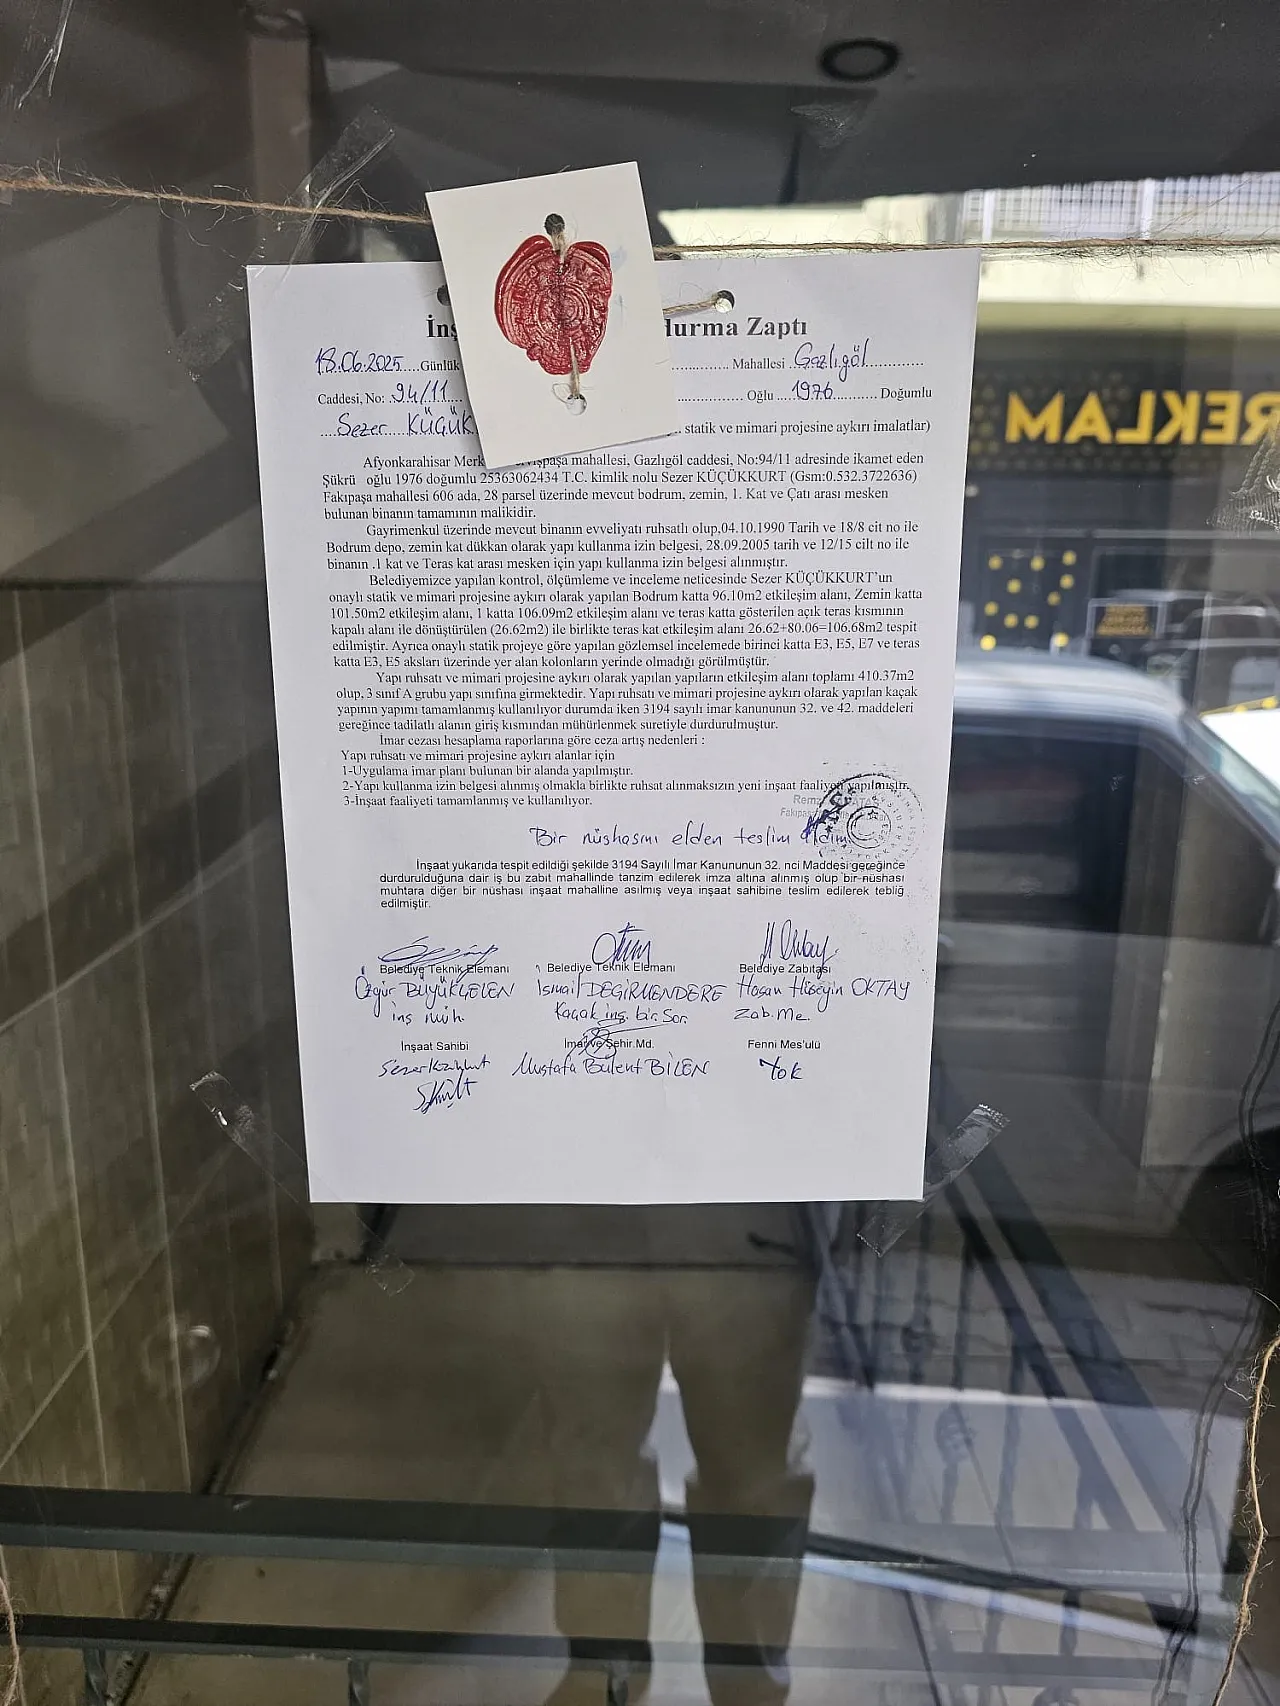 İnş durma Zaptı
18.06.2025....Günlük ............. Mahallesi ..Gazlıgöl.............
Caddesi, No: .94/11.... ................ Oğlu ....1976........... Doğumlu
....Sezer....KÜÇÜK .. statik ve mimari projesine aykırı imalatlar)
Afyonkarahisar Merk paşa mahallesi, Gazlıgöl caddesi, No:94/11 adresinde ikamet eden
Şükrü oğlu 1976 doğumlu 25363062434 T.C. kimlik nolu Sezer KÜÇÜKKURT (Gsm:0.532.3722636)
Fakıpaşa mahallesi 606 ada, 28 parsel üzerinde mevcut bodrum, zemin, 1. Kat ve Çatı arası mesken
bulunan binanın tamamının malikidir.
Gayrimenkul üzerinde mevcut binanın evveliyatı ruhsatlı olup,04.10.1990 Tarih ve 18/8 cit no ile
Bodrum depo, zemin kat dükkan olarak yapı kullanma izin belgesi, 28.09.2005 tarih ve 12/15 cilt no ile
binanın .1 kat ve Teras kat arası mesken için yapı kullanma izin belgesi alınmıştır.
Belediyemizce yapılan kontrol, ölçümleme ve inceleme neticesinde Sezer KÜÇÜKKURT'un
onaylı statik ve mimari projesine aykırı olarak yapılan Bodrum katta 96.10m2 etkileşim alanı, Zemin katta
101.50m2 etkileşim alanı, 1 katta 106.09m2 etkileşim alanı ve teras katta gösterilen açık teras kısmının
kapalı alanı ile dönüştürülen (26.62m2) ile birlikte teras kat etkileşim alanı 26.62+80.06=106.68m2 tespit
edilmiştir. Ayrıca onaylı statik projeye göre yapılan gözlemsel incelemede birinci katta E3, E5, E7 ve teras
katta E3, E5 aksları üzerinde yer alan kolonların yerinde olmadığı görülmüştür.
Yapı ruhsatı ve mimari projesine aykırı olarak yapılan yapıların etkileşim alanı toplamı 410.37m2
olup, 3 sınıf A grubu yapı sınıfına girmektedir. Yapı ruhsatı ve mimari projesine aykırı olarak yapılan kaçak
yapının yapımı tamamlanmış kullanılıyor durumda iken 3194 sayılı imar kanununun 32. ve 42. maddeleri
gereğince tadilatlı alanın giriş kısmından mühürlenmek suretiyle durdurulmuştur.
İmar cezası hesaplama raporlarına göre ceza artış nedenleri :
Yapı ruhsatı ve mimari projesine aykırı alanlar için
1-Uygulama imar planı bulunan bir alanda yapılmıştır.
2-Yapı kullanma izin belgesi alınmış olmakla birlikte ruhsat alınmaksızın yeni inşaat faaliyeti yapılmıştır.
3-İnşaat faaliyeti tamamlanmış ve kullanılıyor.
Bir nüshasını elden teslim aldım
İnşaat yukarıda tespit edildiği şekilde 3194 Sayılı İmar Kanununun 32. nci Maddesi gereğince
durdurulduğuna dair iş bu zabıt mahallinde tanzim edilerek imza altına alınmış olup bir nüshası
muhtara diğer bir nüshası inşaat mahalline asılmış veya inşaat sahibine teslim edilerek tebliğ
edilmiştir.
Belediye Teknik Elemanı Belediye Teknik Elemanı Belediye Zabıtası
Özgür BÜYÜKGELEN İsmail DEĞİRMENDERE Hasan Hüseyin OKTAY
inş müh. Kaçak inş. bir. Sor. Zab. Me.
İnşaat Sahibi İmar ve Şehir.Md. Fenni Mes'ulü
Sezer Küçükkurt Mustafa Bülent BİLEN Yok
REKLAM